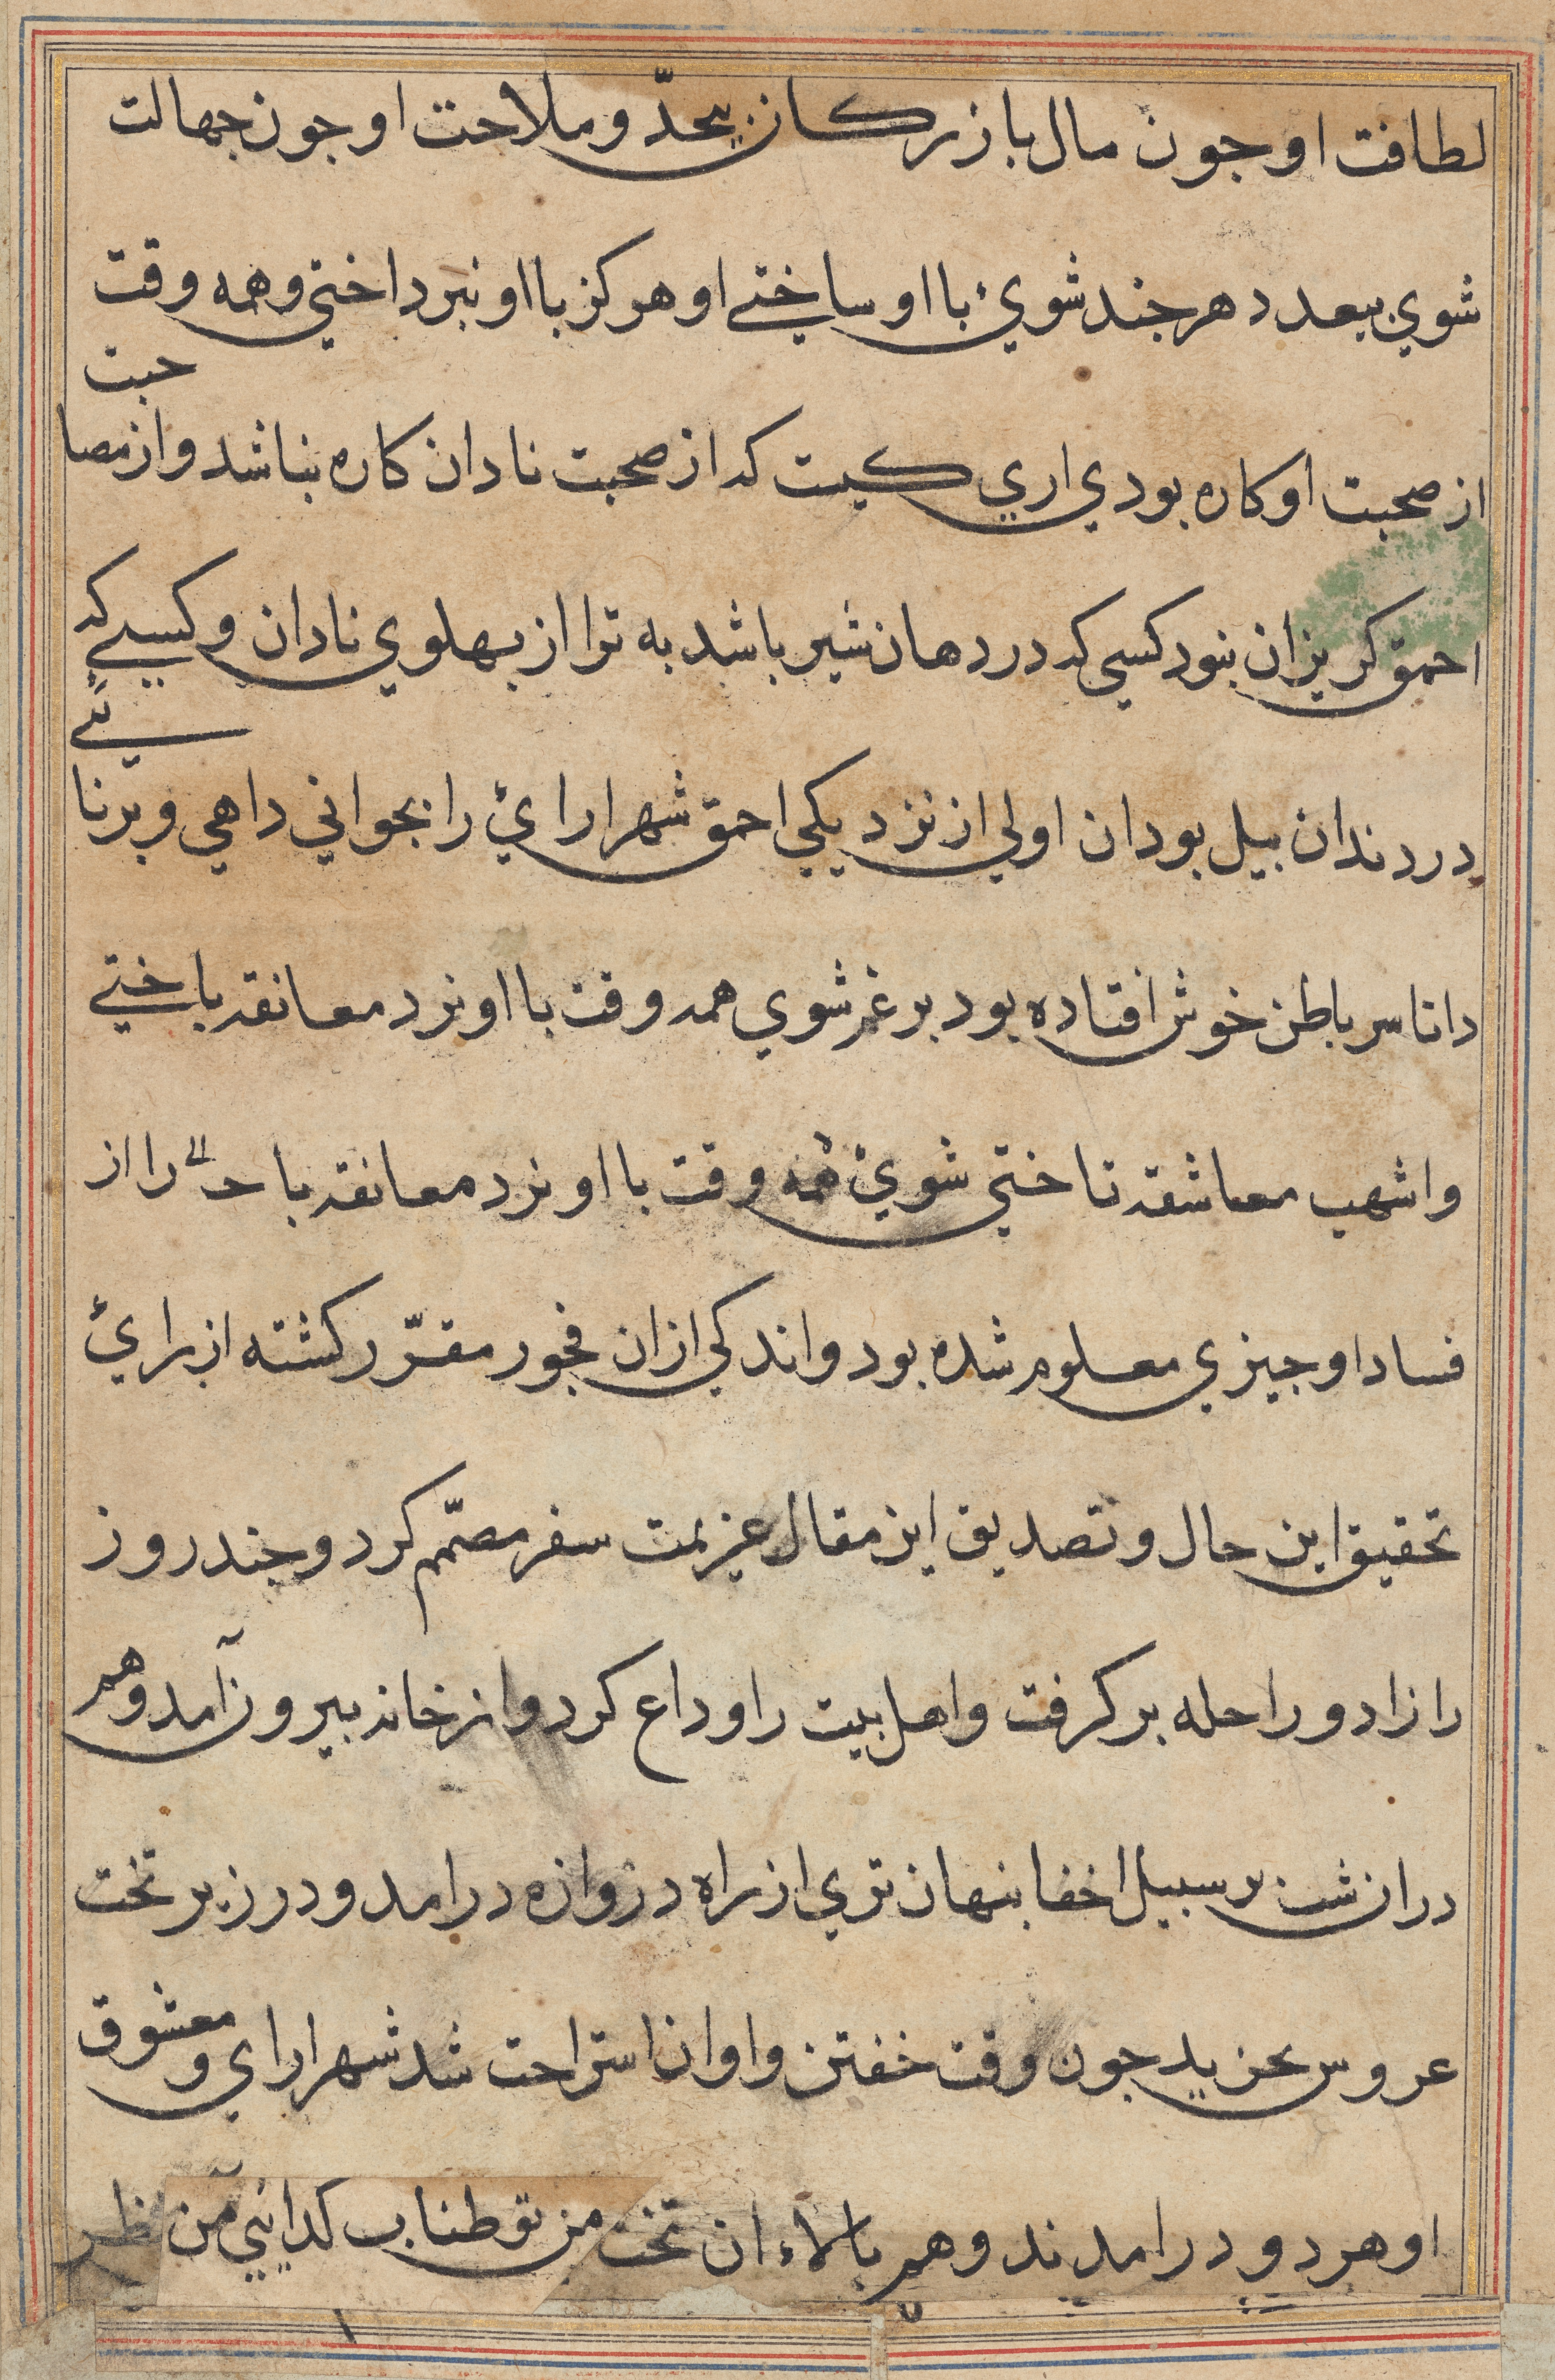 لطافت او جون مال بازركان بيحدّ و ملاحت او جون جهالت
شوي بيعدد هر جند شويء با او ساختي او هركز با او نبرداختي و همه وقت
از صحبت او كاره بودي اري كيست كه از صحبت نادان كاره نباشد و از مصاحبت
احمق كريزان نبود كسي كه در دهان شير باشد به ترا از بهلوي نادان و كسي كه
در دندان بيل بود ان اولي از نزديكي احمق شهرارايء را بجواني داهي و برنائي
دانا سر باطن خوش افتاده بود بر غم شوي همه وقت با او نرد معانقه باختي
و اشهب معاشقه تاختي شويء همه وقت با او نرد معانقه با حـ الى را از
فساد او جيزي معلوم شده بود و اندكي ازان فجور مقرّر كشته از برايء
تحقيق اين حال و تصديق اين مقال عزيمت سفر مصمّم كرد و جند روز
را زاد و راحله بر كرفت و اهل بيت را وداع كرد و از خانه بيرون آمد و هم
دران شب بر سبيل اخفا بنهان تري از راه دروازه درامد و در زير تخت
عروس بخزيد جون وقت خفتن و اوان استراحت شد شهراراي و معشوق
او هر دو درامدند و هم بالاء ان تخت من تو طناب كدايي آمن نظر